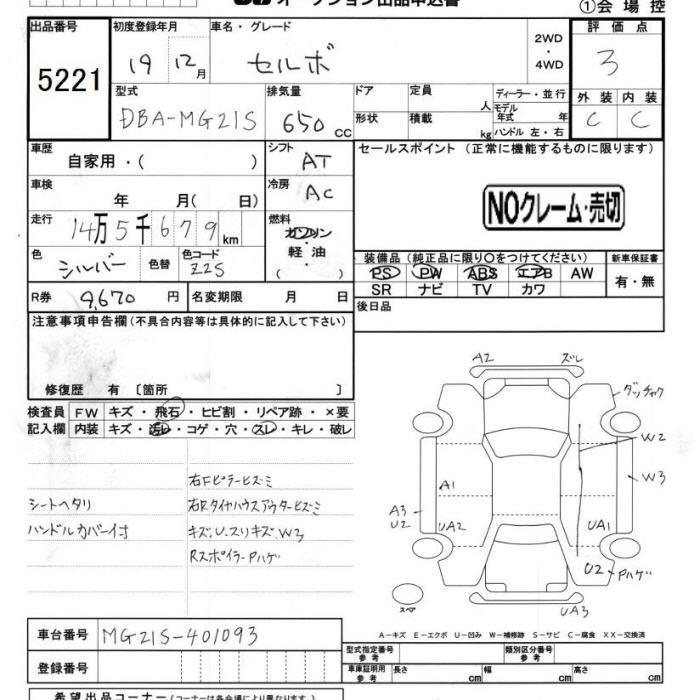 オークション出品申込書
①会場控
出品番号
5221
初度登録年月
19 12月
車名・グレード
セルボ
2WD
・
4WD
評価点
3
型式
DBA-MG21S
排気量
650 CC
ドア
形状
定員
人
積載
kg
ディーラー・並行
モデル
年式 年
ハンドル 左・右
外装 内装
C C
車歴
自家用・( )
シフト
AT
セールスポイント (正常に機能するものに限ります)
NOクレーム・売切
車検
年 月( 日)
冷房
AC
走行
14万5千679km
燃料
ガソリン
・
軽油
・
( )
色
シルバー
色替
色コード
Z2S
装備品(純正品に限り〇をつけてください)
PS PW ABS エアB AW
SR ナビ TV カワ
新車保証書
有・無
R券 9,670 円
名変期限 月 日
後日品
注意事項申告欄(不具合内容等は具体的に記入して下さい)
修復歴 有 〔箇所 〕
検査員
記入欄
FW キズ・飛石・ヒビ割・リペア跡・×要
内装 キズ・汚レ・コゲ・穴・スレ・キレ・破レ
シートヘタリ
ハンドルカバー付
右Fピラーヒズミ
右Rタイヤハウスアウターヒズミ
キズ.U.スリキズ.W3
RスポイラーPハゲ
A2
スレ
ダッチャク
W2
W3
A1
A3
U2
UA2
UA1
U2
Pハゲ
UA3
スペア
A-キズ E-エクボ U-凹み W-補修跡 S-サビ C-腐食 XX-交換済
車台番号
MG21S-401093
登録番号
型式指定番号
参考
類別区分番号
参考
車庫証明用
参考
長さ cm
幅 cm
高さ cm
希望出品コーナー(コーナーは各会場により異なります)